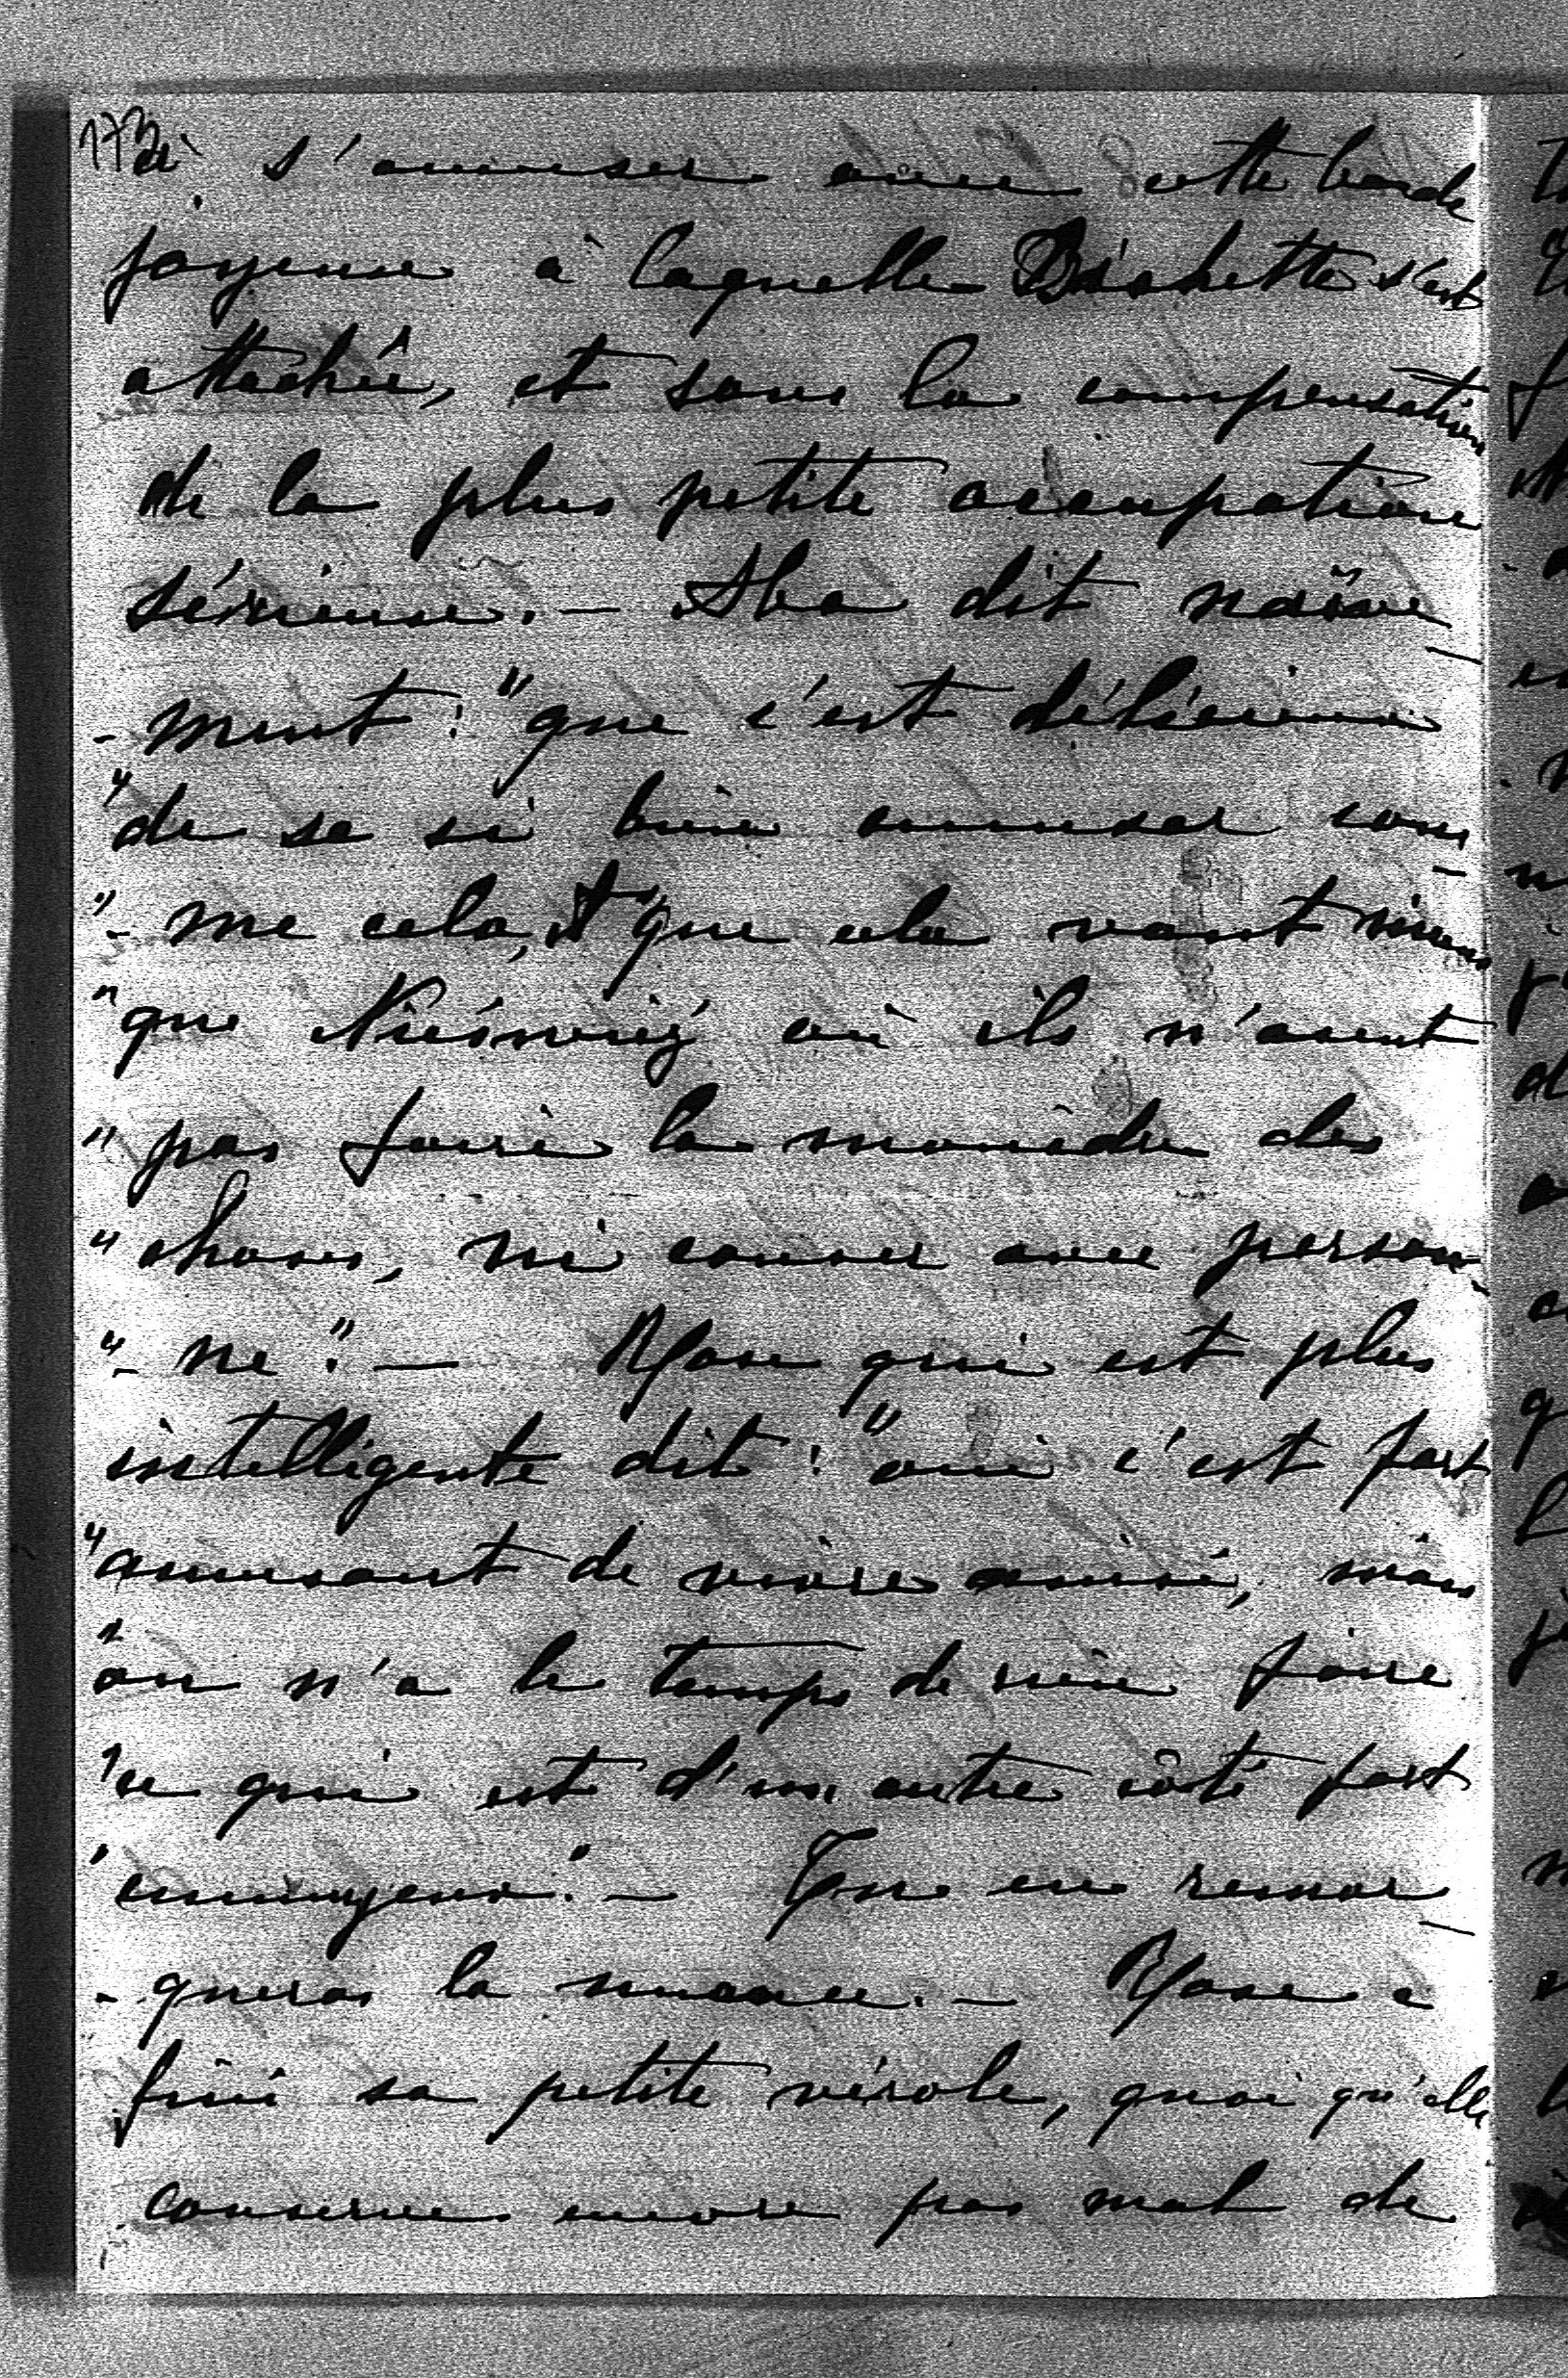 173
à s'amuser avec cette bande
joyeuse à laquelle Bichette s'est
attachée, et sans la compensation
de la plus petite occupation
sérieuse. — Aba dit naïve-
-ment: "que c'est délicieux
"de se si bien amuser com-
"-me cela, et que cela vaut mieux
"que Nieśwież où ils n'osent
"pas faire la moindre des
"choses, ni causer avec person-
"-ne". — Rose qui est plus
intelligente dit: "oui c'est fort
"amusant de vivre ainsi, mais
"on n'a le temps de rien faire
"ce qui est d'un autre côté fort
"ennuyeux". — Tu en remar-
-queras la nuance. — Rose a
fini sa petite vérole, quoi qu'elle
conserve encore pas mal de